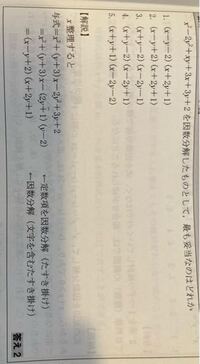 x²−2y²+xy+3x+3y+2 を因数分解したものとして、最も妥当なのはどれか
1. (x−y−2) (x+2y+1)
2. (x−y+2) (x+2y+1)
3. (x+y−2) (x−2y−1)
4. (x+y−2) (x−2y+1)
5. (x+y+1) (x−2y−2)
【解説】
x 整理すると
与式=x²+(y+3)x−2y²+3y+2
=x²+(y+3)x−(2y+1)(y−2) ←定数項を因数分解（たすき掛け）
=(x−y+2) (x+2y+1) ←因数分解（文字を含むたすき掛け）
答え. 2